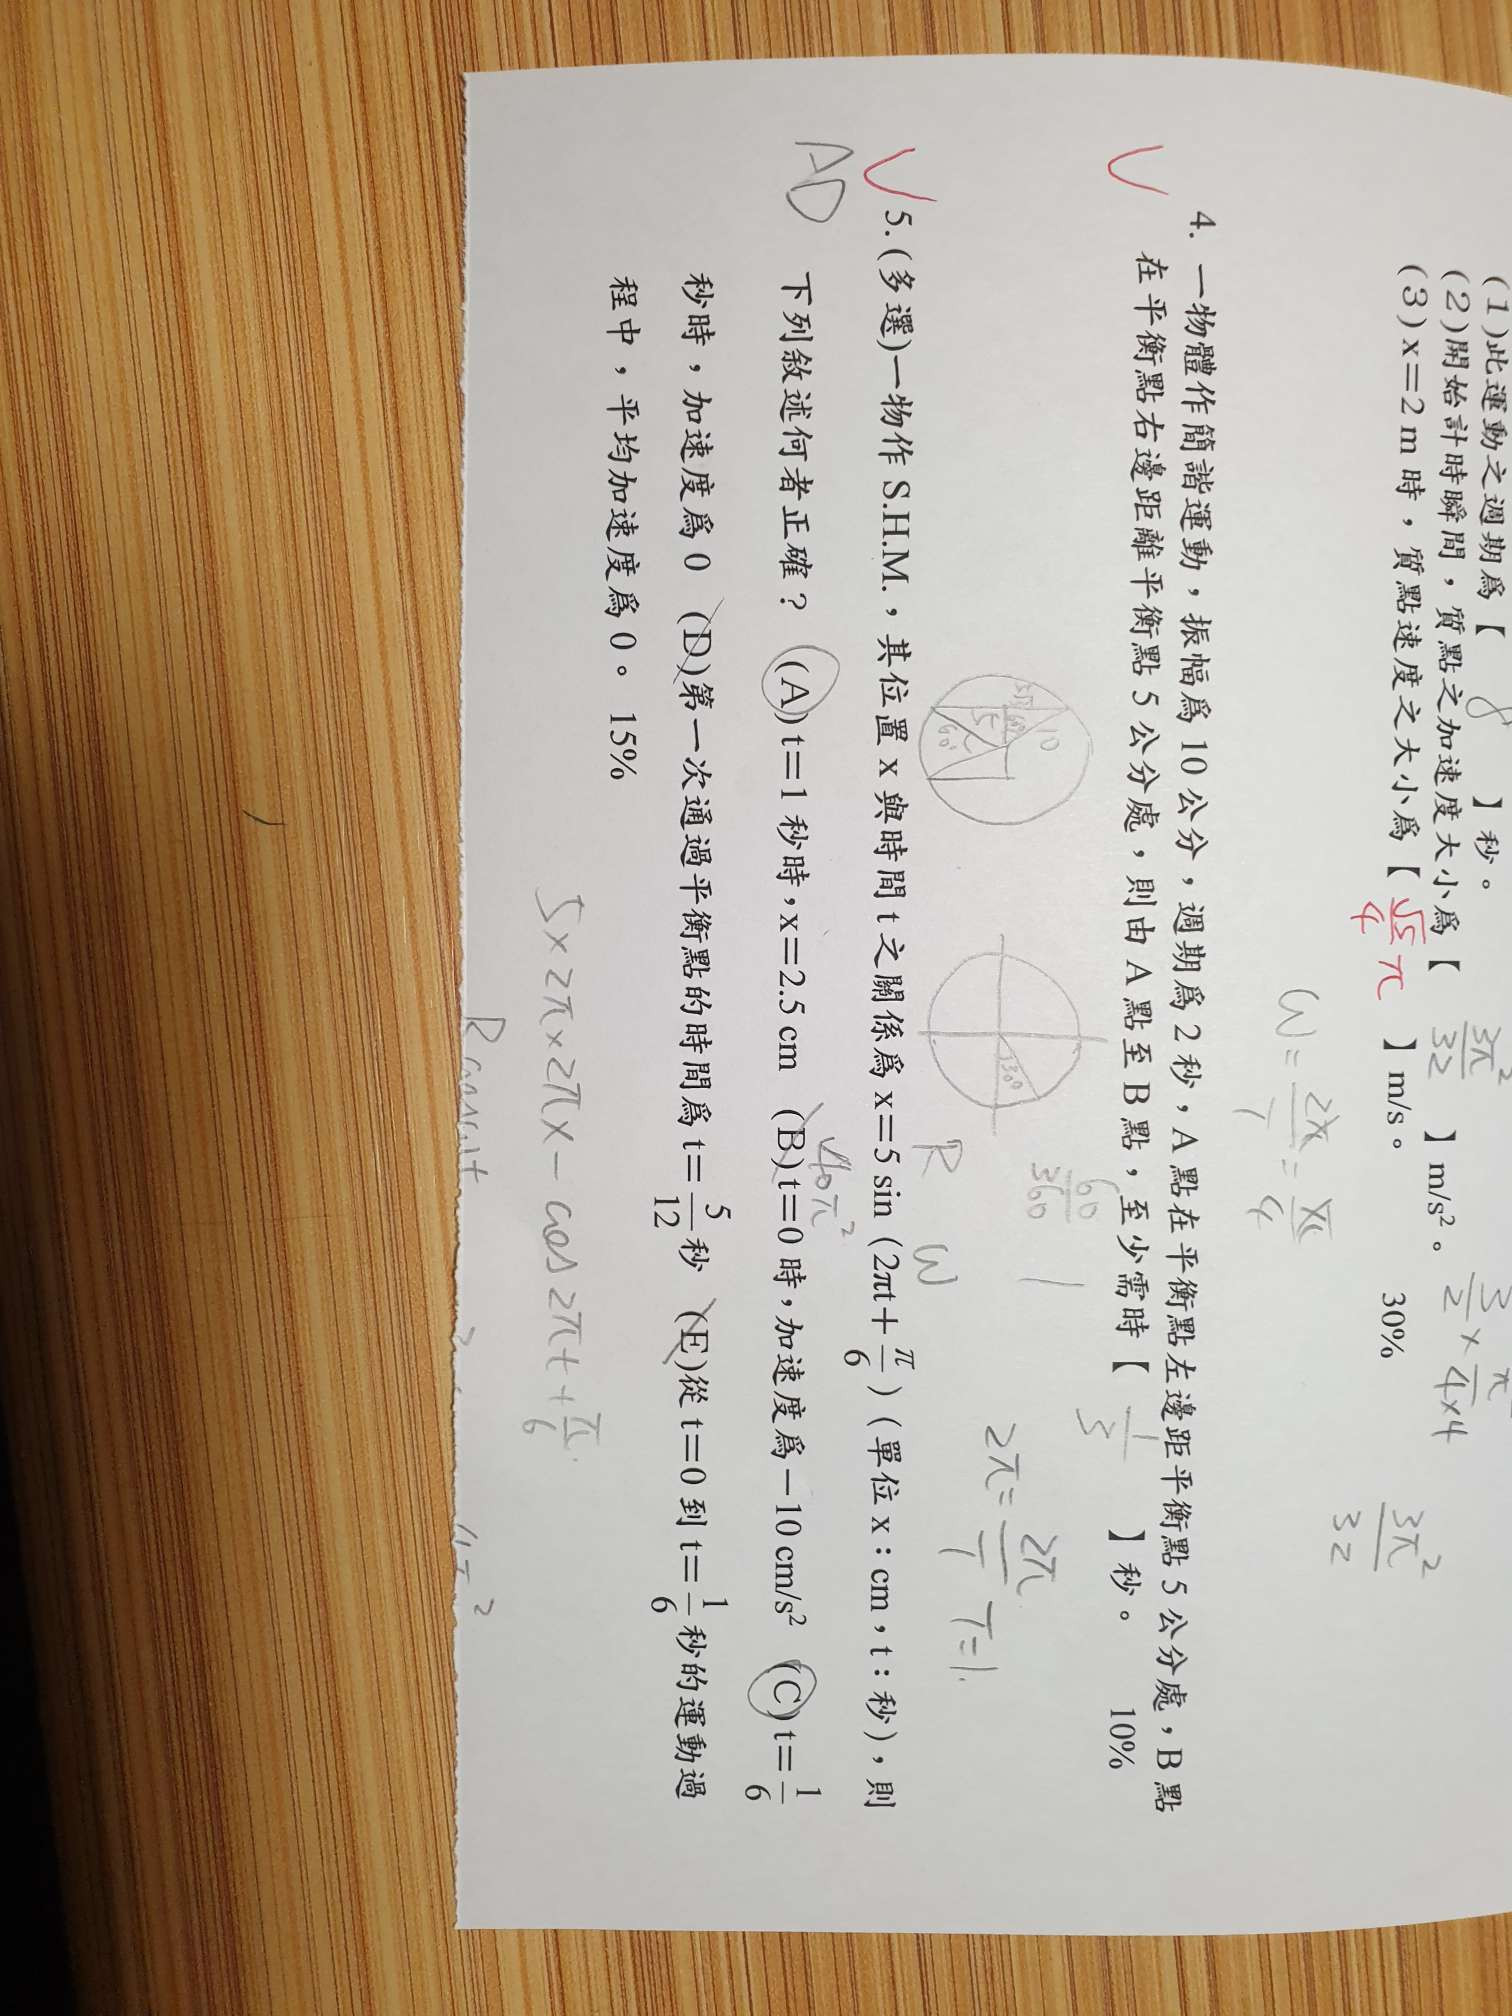 (1)此運動之週期為【 8 】秒。
(2)開始計時瞬間，質點之加速度大小為【 3π²/32 】m/s²。
(3) x＝2 m 時，質點速度之大小為【 √5/4 π 】m/s。 30%
3/2 × π/4×4
3π²/32
W = 2π/T =
4. 一物體作簡諧運動，振幅為 10 公分，週期為 2 秒，A 點在平衡點左邊距平衡點 5 公分處，B 點
在平衡點右邊距離平衡點 5 公分處，則由 A 點至 B 點，至少需時【 1/3 】秒。 10%
10
60°
5
60°
30°
60/360
R W
2π = 2π/T T=1.
5. (多選)一物作 S.H.M.，其位置 x 與時間 t 之關係為 x＝5 sin（2πt＋π/6）（單位 x：cm，t：秒），則
AD
下列敘述何者正確？ (A) t＝1 秒時，x＝2.5 cm (B) t＝0 時，加速度為－10 cm/s² (C) t＝1/6
秒時，加速度為 0 (D)第一次通過平衡點的時間為 t＝5/12 秒 (E)從 t＝0 到 t＝1/6 秒的運動過
程中，平均加速度為 0。 15%
5×2π×2π× - cos 2πt + π/6.